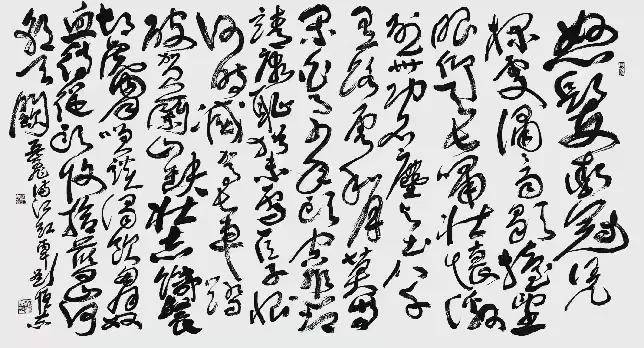 怒髮衝冠憑
欄處瀟瀟雨歇抬望
眼仰天長嘯壯懷激
烈卅功名塵與土八千
里路雲和月莫等
閑白了少年頭空悲切
靖康恥猶未雪臣子恨
何時滅駕長車踏
破賀蘭山缺壯志飢餐
胡虜肉笑談渴飲匈奴
血待從頭收拾舊山河
朝天闕 岳飛滿江紅